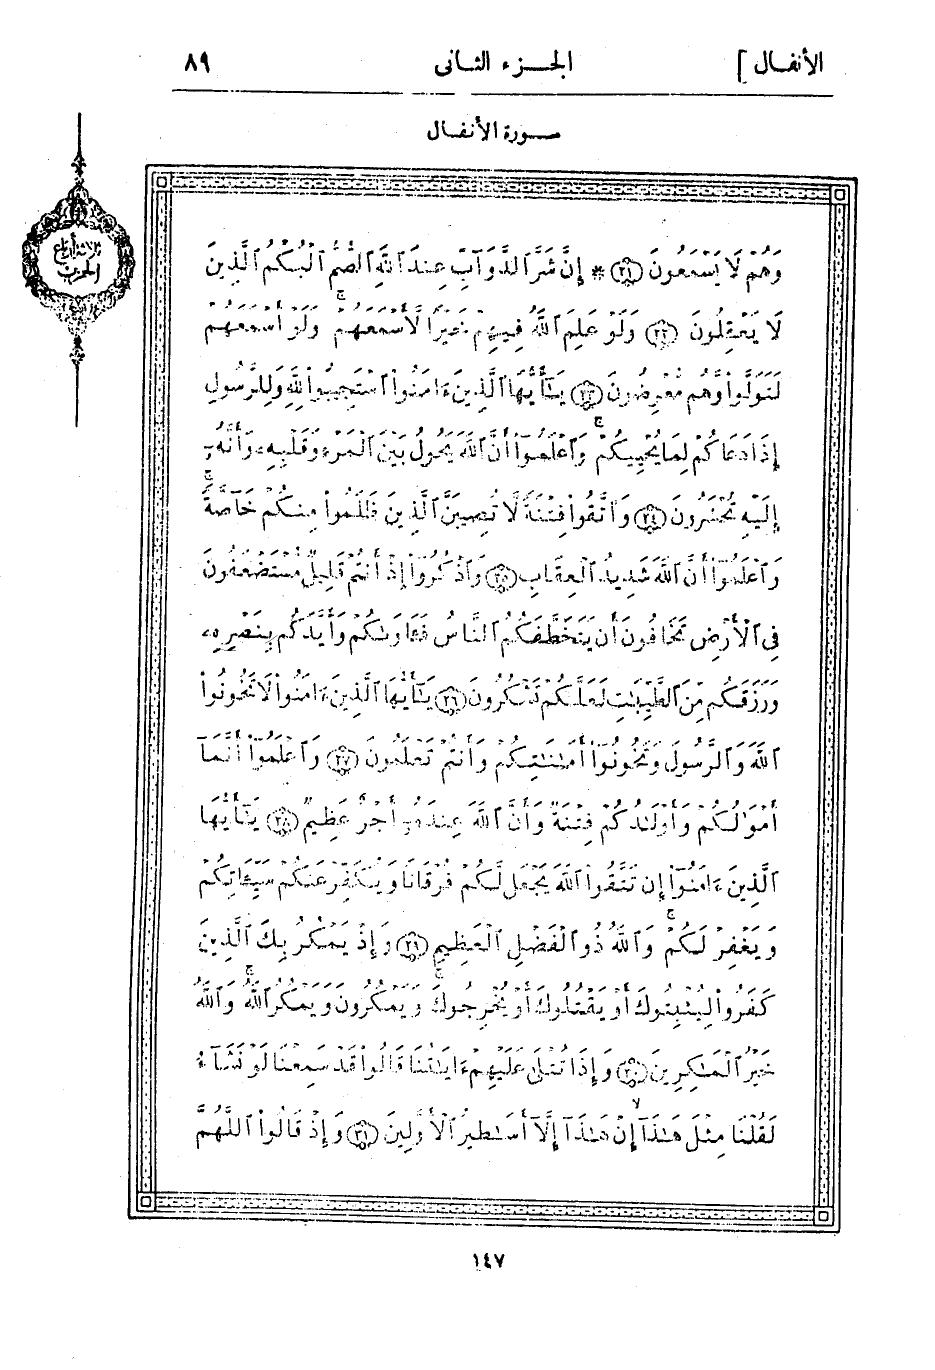 الأنفال ] الجزء الثانى ٨٩
سورة الأنفال
ثلاثة أرباع
الحزب
وَهُمْ لَا يَسْمَعُونَ ﴿٢١﴾ * إِنَّ شَرَّ ٱلدَّوَآبِّ عِندَ ٱللَّهِ ٱلصُّمُّ ٱلْبُكْمُ ٱلَّذِينَ
لَا يَعْقِلُونَ ﴿٢٢﴾ وَلَوْ عَلِمَ ٱللَّهُ فِيهِمْ خَيْرًا لَّأَسْمَعَهُمْ ۖ وَلَوْ أَسْمَعَهُمْ
لَتَوَلَّوا۟ وَّهُم مُّعْرِضُونَ ﴿٢٣﴾ يَـٰٓأَيُّهَا ٱلَّذِينَ ءَامَنُوا۟ ٱسْتَجِيبُوا۟ لِلَّهِ وَلِلرَّسُولِ
إِذَا دَعَاكُمْ لِمَا يُحْيِيكُمْ ۚ وَٱعْلَمُوٓا۟ أَنَّ ٱللَّهَ يَحُولُ بَيْنَ ٱلْمَرْءِ وَقَلْبِهِۦ وَأَنَّهُۥٓ
إِلَيْهِ تُحْشَرُونَ ﴿٢٤﴾ وَٱتَّقُوا۟ فِتْنَةً لَّا تُصِيبَنَّ ٱلَّذِينَ ظَلَمُوا۟ مِنكُمْ خَآصَّةً ۖ
وَٱعْلَمُوٓا۟ أَنَّ ٱللَّهَ شَدِيدُ ٱلْعِقَابِ ﴿٢٥﴾ وَٱذْكُرُوٓا۟ إِذْ أَنتُمْ قَلِيلٌ مُّسْتَضْعَفُونَ
فِى ٱلْأَرْضِ تَخَافُونَ أَن يَتَخَطَّفَكُمُ ٱلنَّاسُ فَـَٔاوَىٰكُمْ وَأَيَّدَكُم بِنَصْرِهِۦ
وَرَزَقَكُم مِّنَ ٱلطَّيِّبَـٰتِ لَعَلَّكُمْ تَشْكُرُونَ ﴿٢٦﴾ يَـٰٓأَيُّهَا ٱلَّذِينَ ءَامَنُوا۟ لَا تَخُونُوا۟
ٱللَّهَ وَٱلرَّسُولَ وَتَخُونُوٓا۟ أَمَـٰنَـٰتِكُمْ وَأَنتُمْ تَعْلَمُونَ ﴿٢٧﴾ وَٱعْلَمُوٓا۟ أَنَّمَآ
أَمْوَٰلُكُمْ وَأَوْلَـٰدُكُمْ فِتْنَةٌ وَأَنَّ ٱللَّهَ عِندَهُۥٓ أَجْرٌ عَظِيمٌ ﴿٢٨﴾ يَـٰٓأَيُّهَا
ٱلَّذِينَ ءَامَنُوٓا۟ إِن تَتَّقُوا۟ ٱللَّهَ يَجْعَل لَّكُمْ فُرْقَانًا وَيُكَفِّرْ عَنكُمْ سَيِّـَٔاتِكُمْ
وَيَغْفِرْ لَكُمْ ۗ وَٱللَّهُ ذُو ٱلْفَضْلِ ٱلْعَظِيمِ ﴿٢٩﴾ وَإِذْ يَمْكُرُ بِكَ ٱلَّذِينَ
كَفَرُوا۟ لِيُثْبِتُوكَ أَوْ يَقْتُلُوكَ أَوْ يُخْرِجُوكَ ۚ وَيَمْكُرُونَ وَيَمْكُرُ ٱللَّهُ ۖ وَٱللَّهُ
خَيْرُ ٱلْمَـٰكِرِينَ ﴿٣٠﴾ وَإِذَا تُتْلَىٰ عَلَيْهِمْ ءَايَـٰتُنَا قَالُوا۟ قَدْ سَمِعْنَا لَوْ نَشَآءُ
لَقُلْنَا مِثْلَ هَـٰذَآ ۙ إِنْ هَـٰذَآ إِلَّآ أَسَـٰطِيرُ ٱلْأَوَّلِينَ ﴿٣١﴾ وَإِذْ قَالُوا۟ ٱللَّهُمَّ
١٤٧